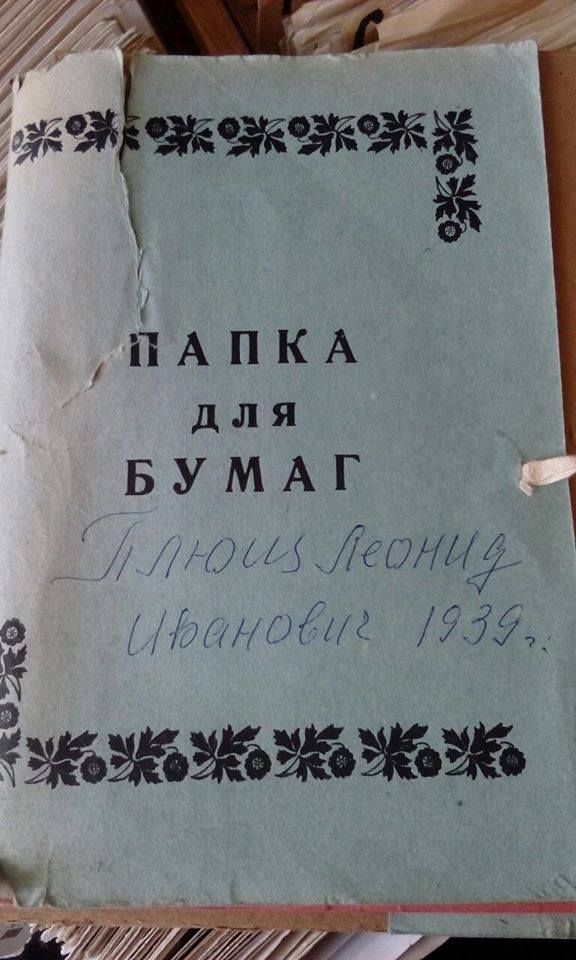 ПАПКА
ДЛЯ
БУМАГ
Плющ Леонид
Иванович 1939 г.